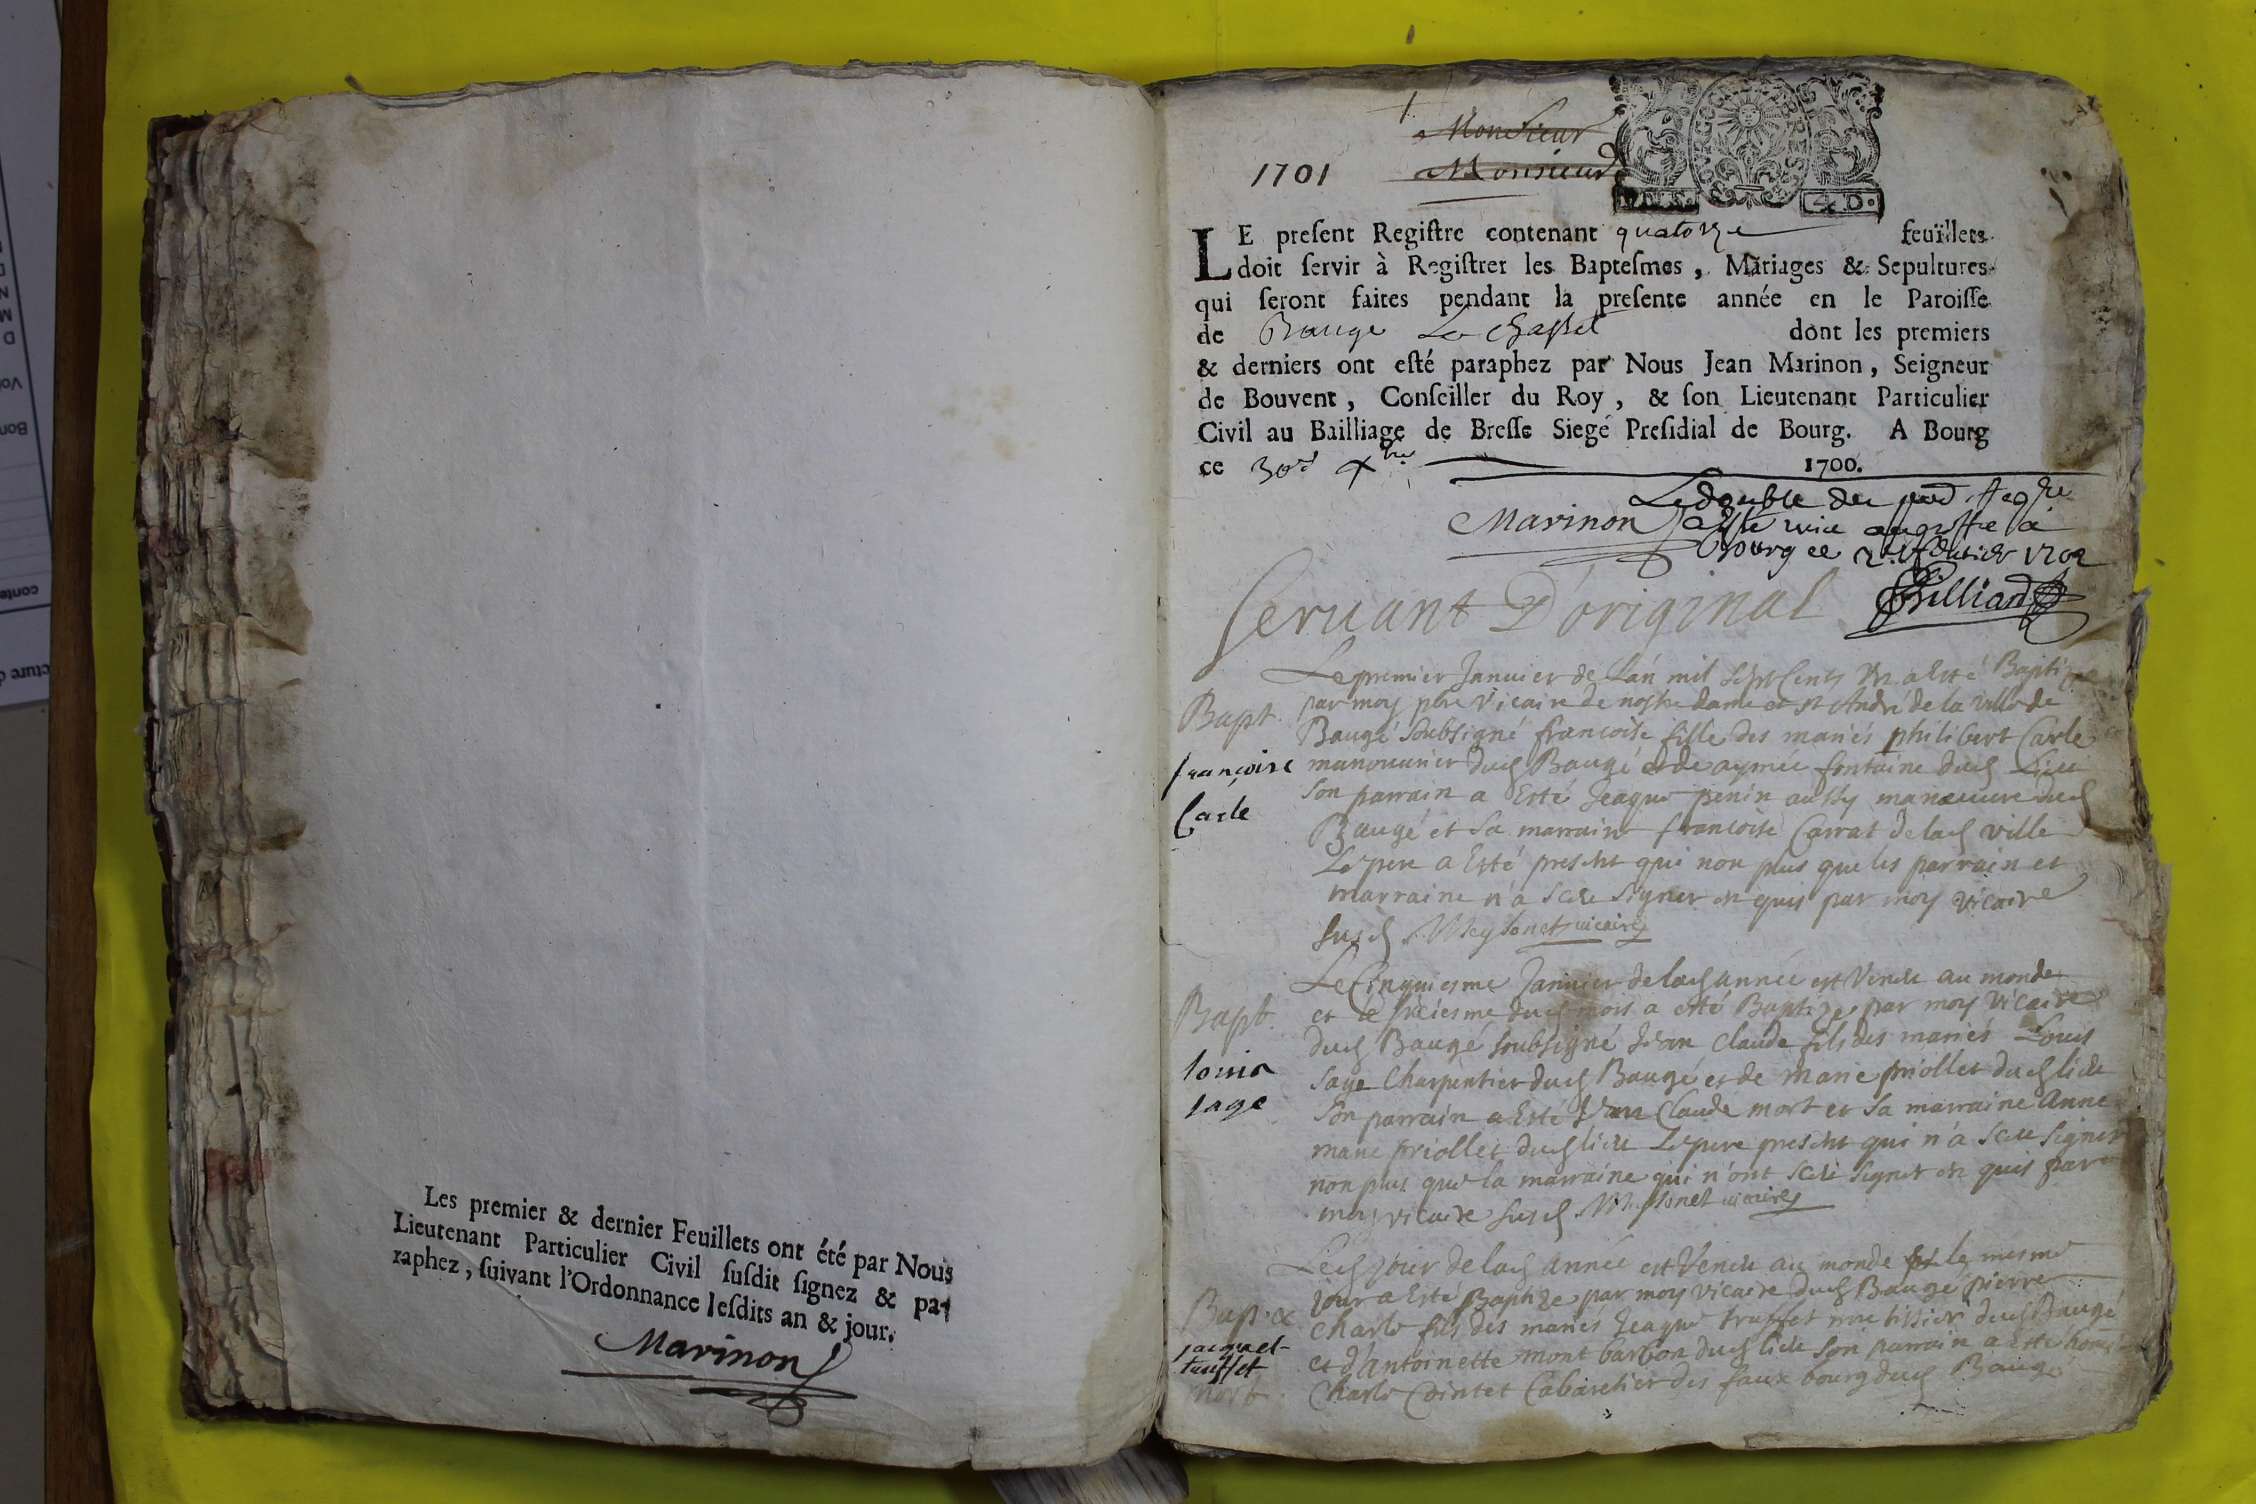 Les premier & dernier Feuillets ont été par Nous
Lieutenant Particulier Civil ſuſdit ſignez & pa-
raphez, ſuivant l'Ordonnance leſdits an & jour.
Marinon
Monsieur
1701 Monsieur
BOURGOGNE
4. D.
LE preſent Regiſtre contenant quatorze feuïllets
doit ſervir à Regiſtrer les Bapteſmes, Mariages & Sepultures
qui ſeront faites pendant la preſente année en le Paroiſſe
de Baugé Le chastel dont les premiers
& derniers ont eſté paraphez par Nous Jean Marinon, Seigneur
de Bouvent, Conſeiller du Roy, & ſon Lieutenant Particulier
Civil au Bailliage de Breſſe Siege Preſidial de Bourg. A Bourg
ce 30e Xbre 1700.
Le double du
Marinon a esté mis au greffe à
Bourg ce 1702
Billiard
Servant D'original
Le premier Janvier de L'an mil sept Cents Un a Esté Baptizé
Bapt. par moy pbre Vicaire de nostre dame et st André de la ville de
Baugé soubsigné francoise fille des mariés philibert Carle
françoise manouvrier dud Baugé et de aymée fontaine dud Lieu
son parrain a Esté Jeaque penin aussy manœuvre dud
Carle
Baugé et sa marraine francoise Carrat de lad ville
Le pere a Esté present qui non plus que les parrain et
marraine n'a sceu signer enquis par moy vicaire
susd Meylonet vicaire
Le Cinquiesme Janvier de lad année est Venu au monde
Bapt. et le sixiesme dud mois a esté Baptizé par moy vicaire
dud Baugé soubsigné Jean Claude fils des mariés Louis
louis sage Charpentier dud Baugé et de marie priollet dud lieu
sage son parrain a Esté Jean Claude mort et sa marraine Anne
marie priollet dud lieu Le pere present qui n'a sceu signer
non plus que la marraine qui n'ont sceu signer enquis par
moy vicaire susd Meylonet vicaire
Led Jour de lad année est Venu au monde le mesme
jour a Esté Baptizé par moy vicaire dud Baugé pierre
Bap. Charle fils des mariés Jeaque truffet tissier dud Baugé
jacque
truffet et d'antoinette mont barbon dud lieu son parrain a Esté
mort Charle Cointet Cabaretier des faux bourg dud Baugé